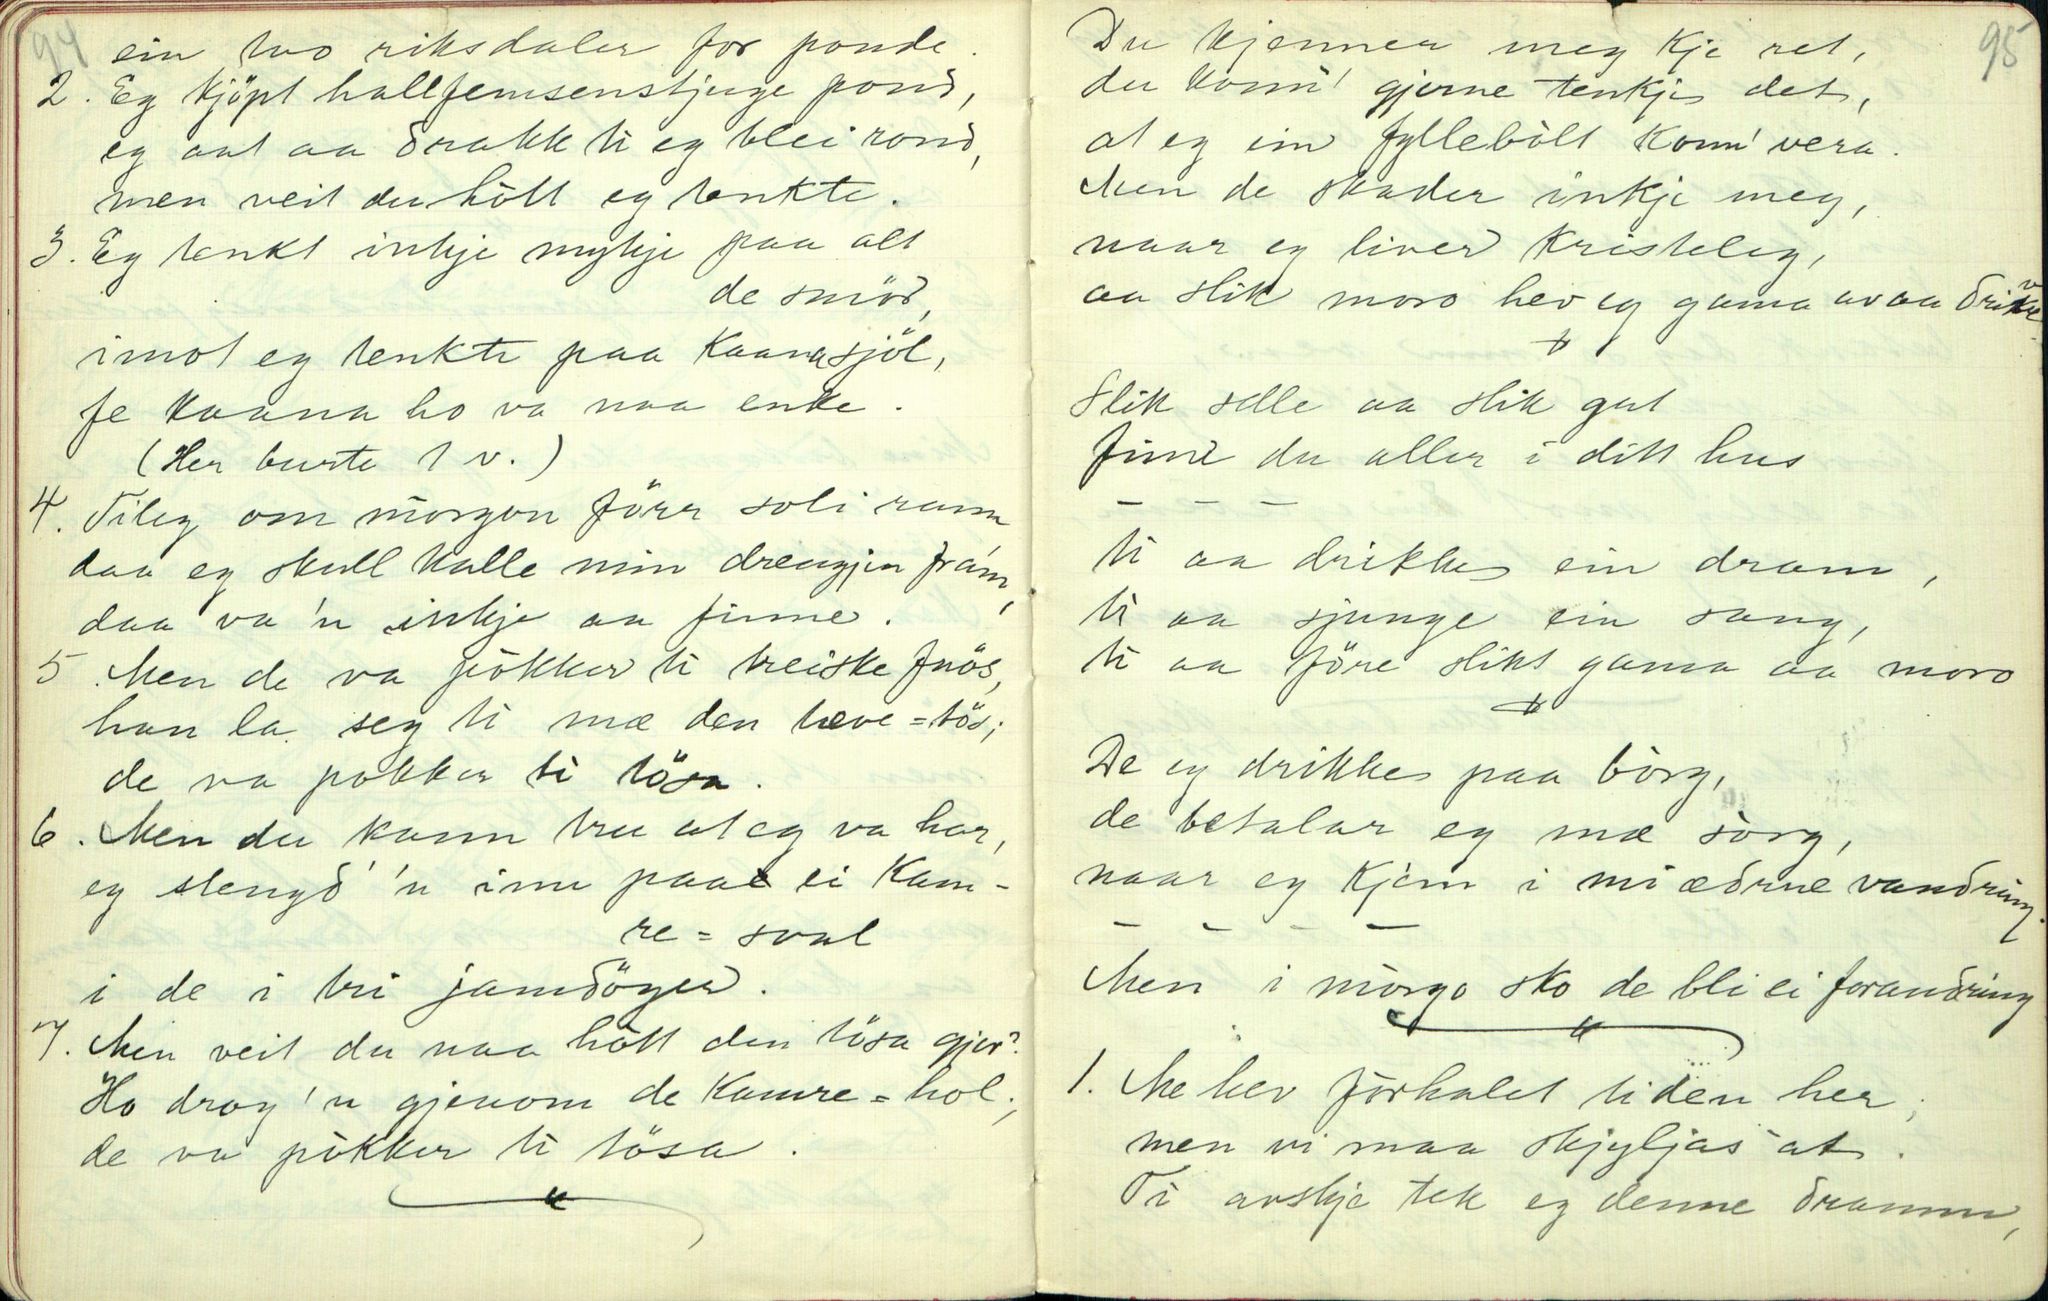 94
ein two riksdaler for ponde.
2. Eg kjöpt hallfemsenstjuge pond,
eg aat aa drakk ti eg blei rond,
men veit du hòtt eg tenkte.
3. Eg tenkt inkje mykje paa alt
de smör,
imot eg tenkte paa Kaana sjöl,
fe Kaana ho va naa enke.
(Her burte 1 v.)
4. Tileg om mòrgon förr soli rann
daa eg skull kalle min drengjen fram,
daa va 'n inkje aa finne.
5. Men de va pòkker ti treiske fnös,
han la seg ti mæ den tæve=tös;
de va pokker ti tösa.
6. Men du kann tru at eg va har,
eg slengd' 'n inn paa ei Kam-
re=sval
i de i tri jamdöger.
7. Men veit du naa hòtt den tösa gjer?
Ho drog 'n gjenom de Kamre=hol;
de va pòkker ti tösa.
95
Du kjenner meg kje ret,
du konn' gjerne tenkje det,
at eg ein fyllebòlt konn' vera.
Men de skader inkje meg,
naar eg liver kristeleg,
aa slik moro hev eg gama av aa drikke
Slik selle aa slik gut
finn du aller i ditt hus
— — —
ti aa drikke ein dram,
ti aa sjunge ein sang,
ti aa före slikt gama aa moro
De eg drikke paa bòrg,
de betalar eg mæ sòrg,
naar eg kjem i mi ædrue vandring.
— — — —
Men i mòrgo sko de bli ei forandring
1. Me hev fòrhalet tiden her,
men vi maa skjyljas at.
Ti avskje tek eg denne drammen,